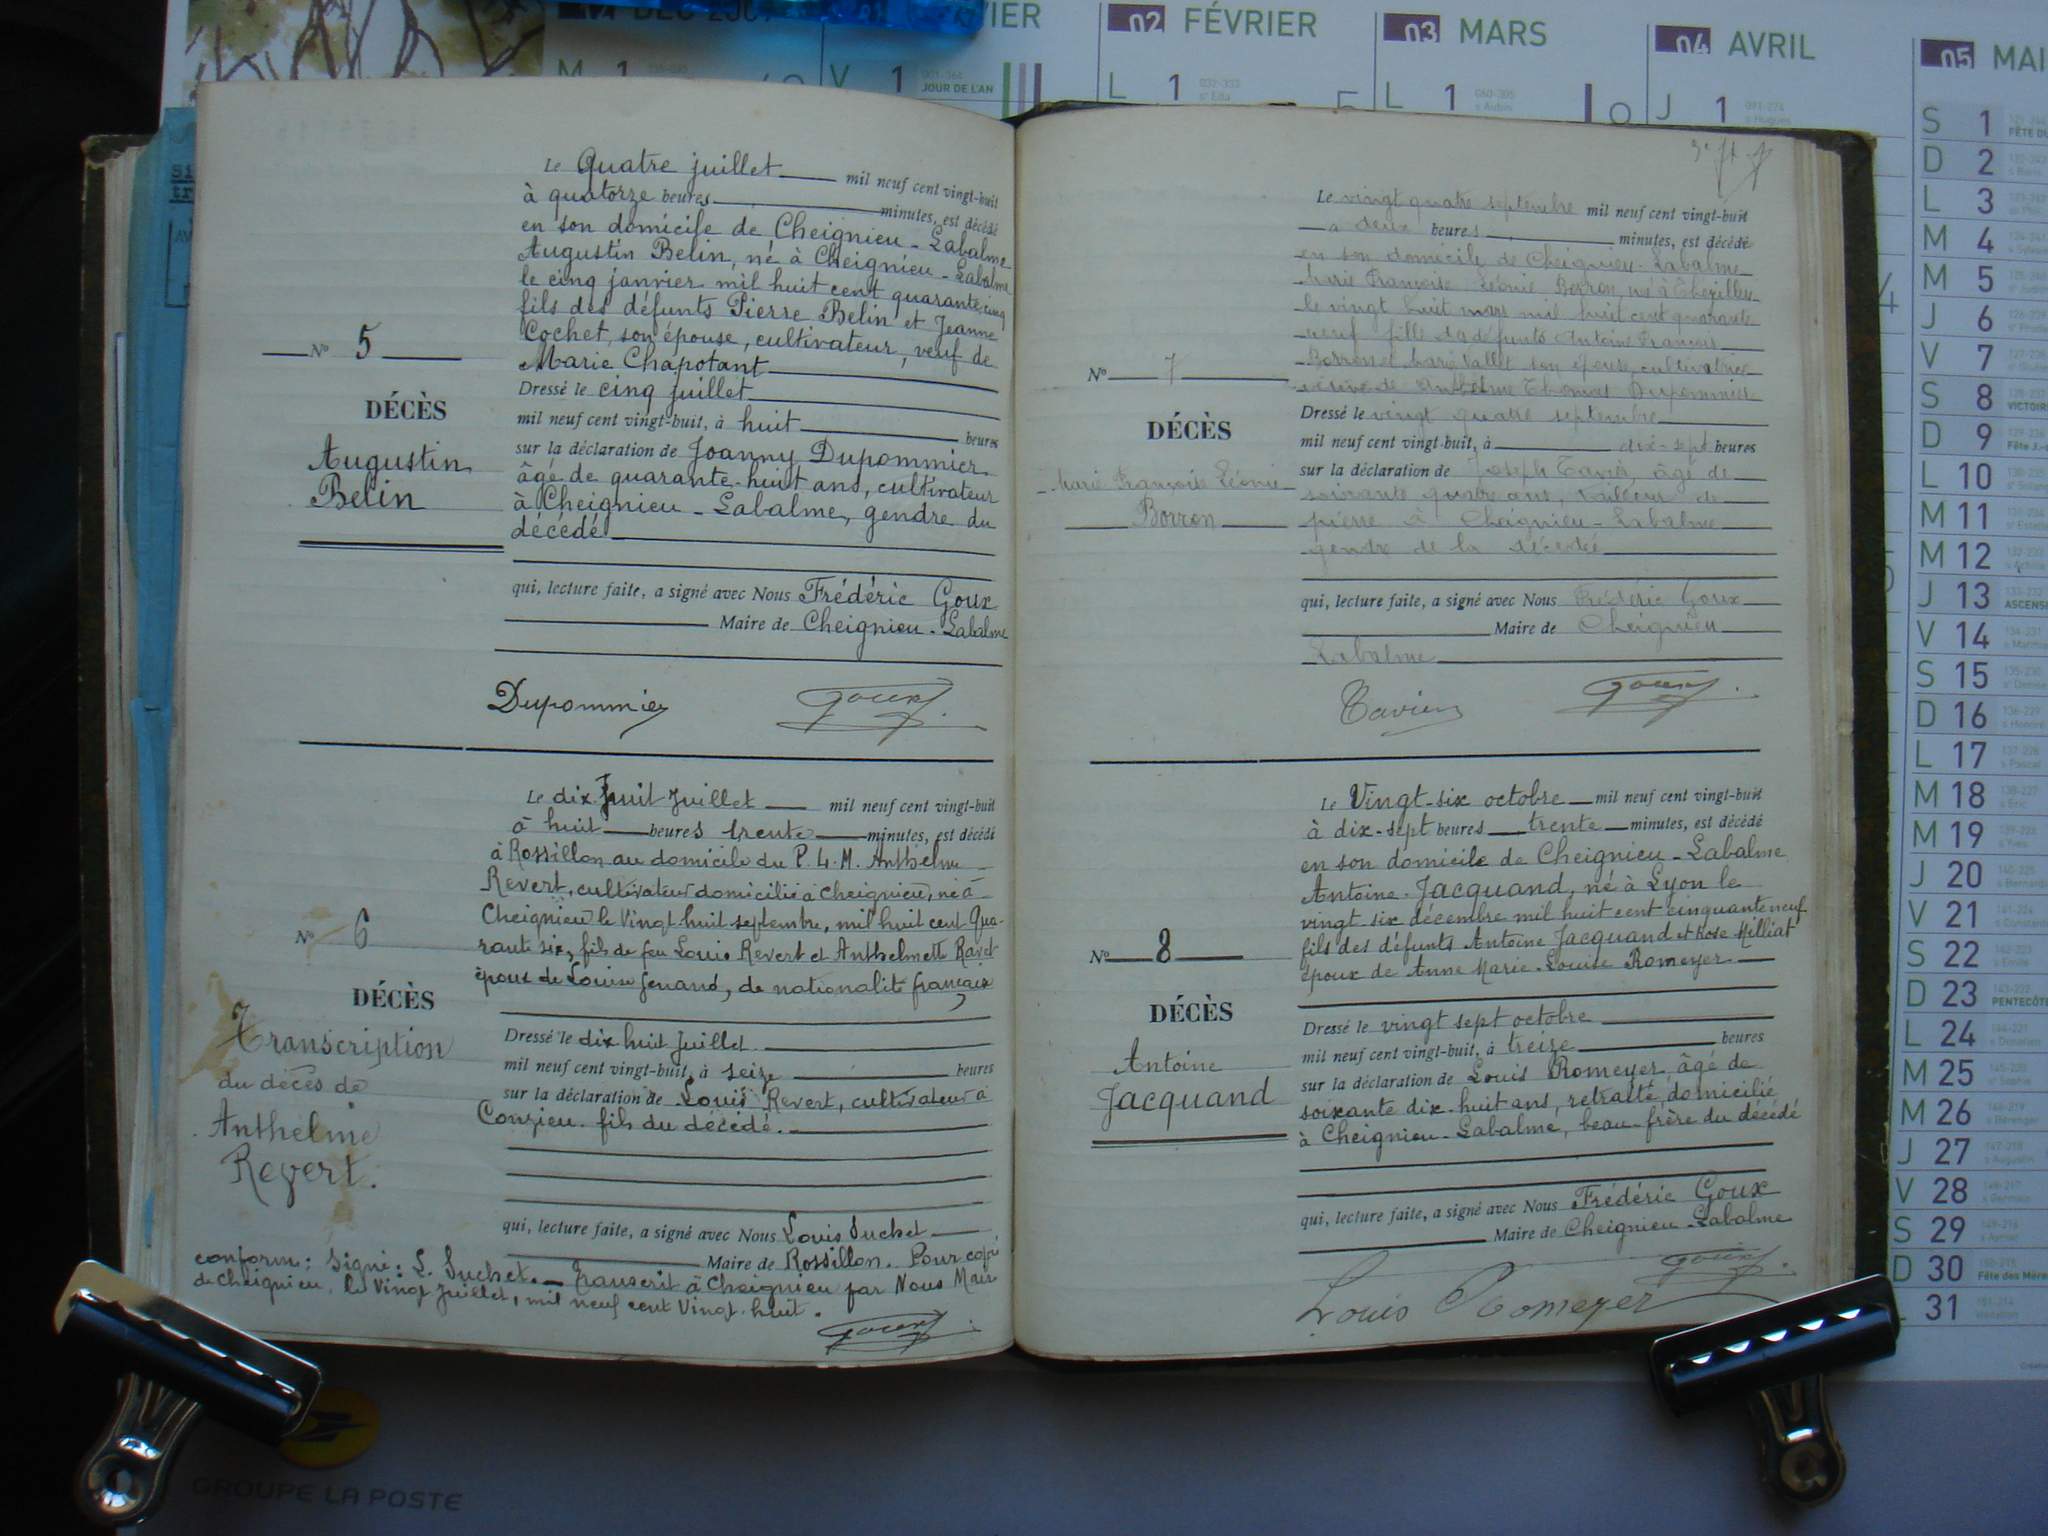 Le Quatre juillet mil neuf cent vingt-huit
à quatorze heures minutes, est décédé
en son domicile de Cheignieu-Labalme
Augustin Belin, né à Cheignieu-Labalme
le cinq janvier mil huit cent quarante-cinq
fils des défunts Pierre Belin et Jeanne
Cochet, son épouse, cultivateur, veuf de
Marie Chapotant
Dressé le cinq juillet
mil neuf cent vingt-huit, à huit heures
sur la déclaration de Joanny Dupommier
âgé de quarante-huit ans, cultivateur
à Cheignieu-Labalme, gendre du
décédé
qui, lecture faite, a signé avec Nous Frédéric Goux
Maire de Cheignieu-Labalme
N° 5
DÉCÈS
Augustin
Belin
Dupommier Goux
Le dix-huit Juillet mil neuf cent vingt-huit
à huit heures trente minutes, est décédé
à Rossillon au domicile du P.L.M. Anthelme
Revert, cultivateur domicilié à Cheignieu, né à
Cheignieu le Vingt-huit septembre, mil huit cent Qua-
rante six, fils de feu Louis Revert et Anthelmette Ravet
époux de Louise Genand, de nationalité française
Dressé le dix huit Juillet
mil neuf cent vingt-huit, à seize heures
sur la déclaration de Louis Revert, cultivateur à
Conzieu. fils du décédé.
qui, lecture faite, a signé avec Nous Louis Suchet
Maire de Rossillon. Pour copie
conforme: Signé: L. Suchet. Transcrit à Cheignieu par Nous Maire
de Cheignieu, le Vingt Juillet, mil neuf cent Vingt-huit.
N° 6
DÉCÈS
Transcription
du décès de
Anthelme
Revert.
Goux
Le vingt quatre septembre mil neuf cent vingt-huit
à deux heures minutes, est décédé
en son domicile de Cheignieu-Labalme
Marie Françoise Léonie Borron, né à
le vingt huit mars mil huit cent quarante
neuf fille des défunts Antoine François
Borron et Marie Vallet son épouse, cultivatrice
veuve de Anthelme Thomas Dupommier
Dressé le vingt quatre septembre
mil neuf cent vingt-huit, à dix-sept heures
sur la déclaration de Joseph Tavier, âgé de
soixante quatre ans, tailleur de
pierre à Cheignieu-Labalme
gendre de la décédée
qui, lecture faite, a signé avec Nous Frédéric Goux
Maire de Cheignieu
Labalme
N° 7
DÉCÈS
Marie Françoise Léonie
Borron
Tavier Goux
Le Vingt-six octobre mil neuf cent vingt-huit
à dix-sept heures trente minutes, est décédé
en son domicile de Cheignieu-Labalme
Antoine Jacquand, né à Lyon le
vingt-six décembre mil huit cent cinquante neuf
fils des défunts Antoine Jacquand et Rose Milliat
époux de Anne Marie-Louise Romeyer
Dressé le vingt sept octobre
mil neuf cent vingt-huit, à treize heures
sur la déclaration de Louis Romeyer, âgé de
soixante dix-huit ans, retraité, domicilié
à Cheignieu-Labalme, beau-frère du décédé
qui, lecture faite, a signé avec Nous Frédéric Goux
Maire de Cheignieu-Labalme
N° 8
DÉCÈS
Antoine
Jacquand
Goux
Louis Romeyer
GROUPE LA POSTE
02 FÉVRIER
03 MARS
04 AVRIL
05 MAI
V 1 JOUR DE L'AN
L 1
L 1
J 1
S 1
D 2
L 3
M 4
M 5
J 6
V 7
S 8
D 9
L 10
M 11
M 12
J 13
V 14
S 15
D 16
L 17
M 18
M 19
J 20
V 21
S 22
D 23
L 24
M 25
M 26
J 27
V 28
S 29
D 30 Fête des Mères
L 31